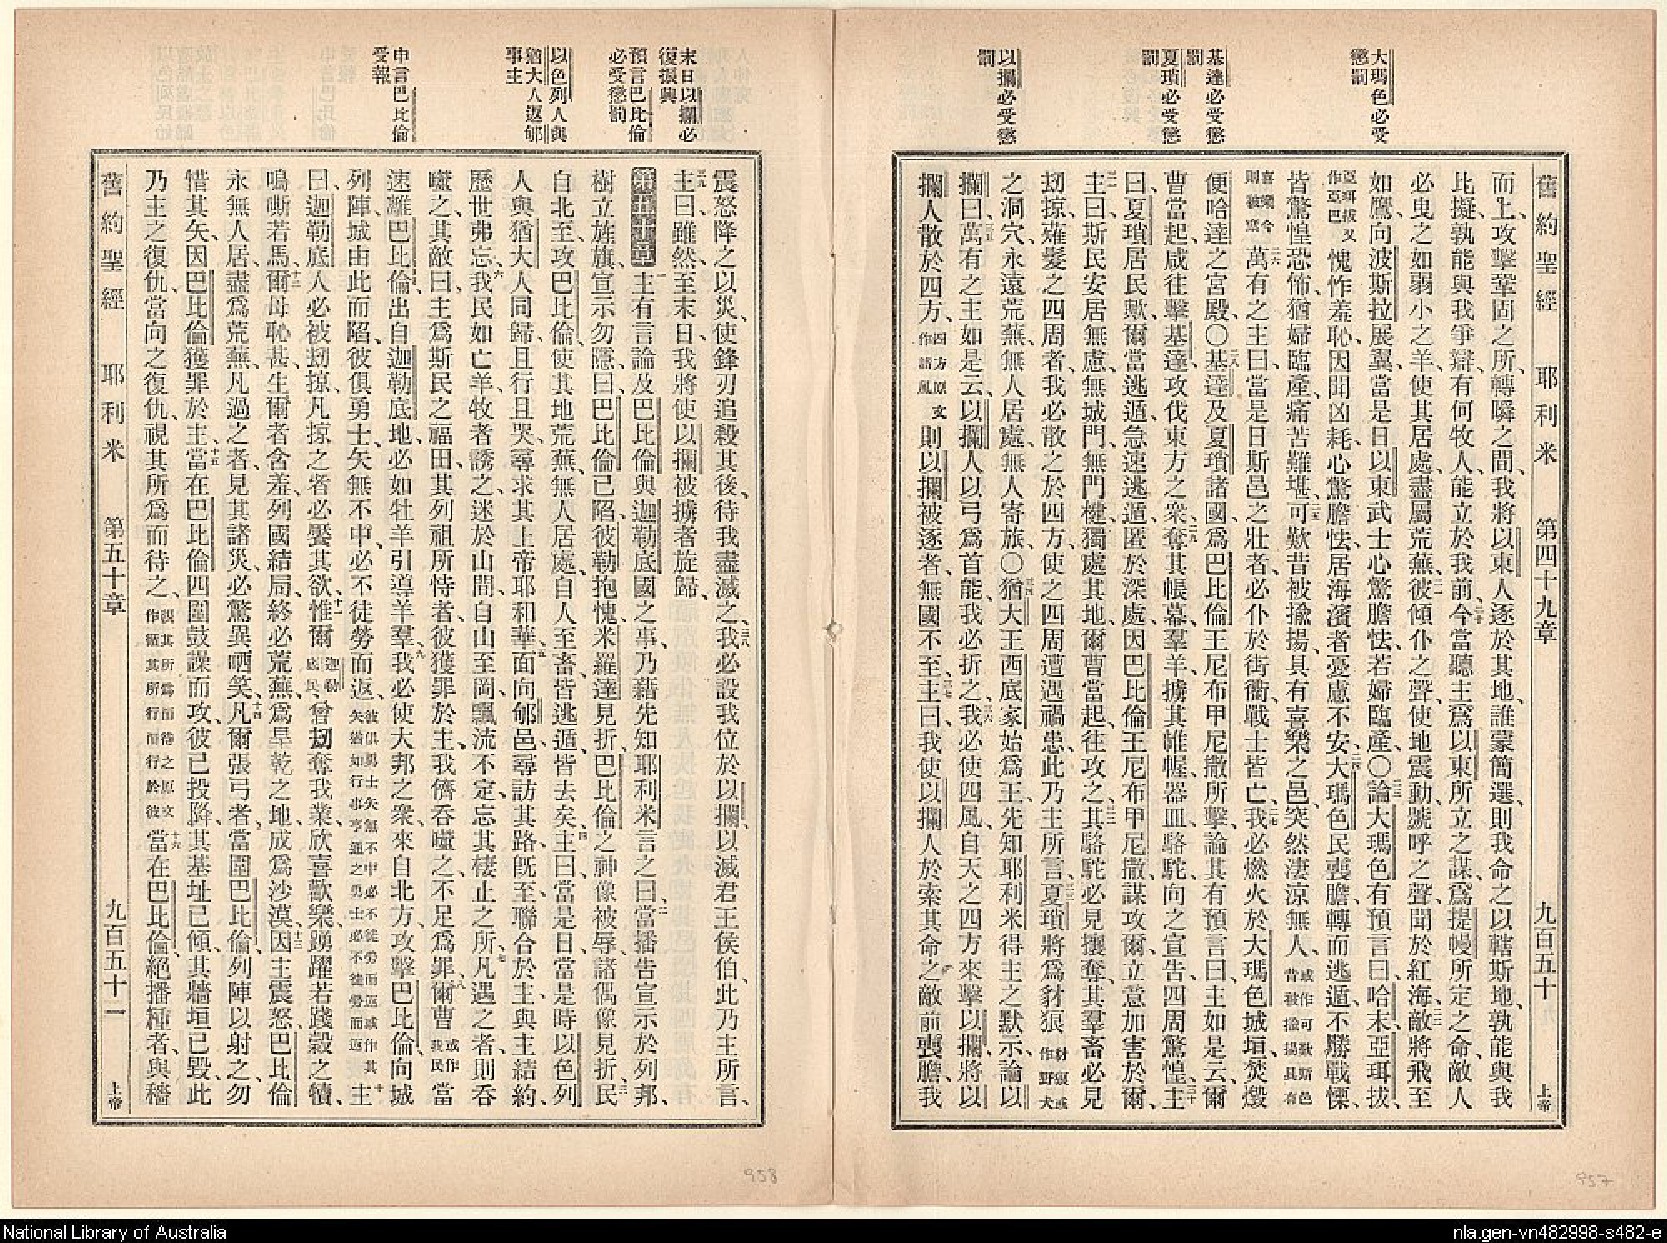 大瑪色必受
懲罰
基達必受懲
罰
夏瑣必受懲
罰
以攔必受懲
罰
舊約聖經 耶利米 第四十九章 九百五十 上帝
而上、攻擊鞏固之所、轉瞬之間、我將以東人逐於其地、誰蒙簡選、則我命之以轄斯地、孰能與我
比擬、孰能與我爭辯、有何牧人、能立於我前、二十今當聽主爲以東所立之謀、爲提幔所定之命、敵人
必曳之如弱小之羊、使其居處、盡屬荒蕪、二一彼傾仆之聲、使地震動、號呼之聲、聞於紅海、二二敵將飛至
如鷹、向波斯拉展翼、當是日以東武士心驚膽怯、若婦臨產、○二三論大瑪色有預言曰、哈末、亞珥拔、
亞珥拔又作亞巴 愧怍羞恥、因聞凶耗、心驚膽怯、居海濱者、憂慮不安、二四大瑪色民喪膽、轉而逃遁、不勝戰慄、
皆驚惶恐怖、猶婦臨產、痛苦難堪、二五可歎昔被揄揚、具有喜樂之邑、突然淒涼無人、或作可歎斯邑昔被揄揚具有
喜樂今則被棄 二六萬有之主曰、當是日斯邑之壯者、必仆於街衢、戰士皆亡、二七我必燃火於大瑪色城垣、焚燬
便哈達之宮殿、○二八基達及夏瑣諸國、爲巴比倫王尼布甲尼撒所擊、論其有預言曰、主如是云、爾
曹當起、咸往擊基達、攻伐東方之衆、二九奪其帳幕羣羊、擄其帷幄器皿駱駝、向之宣告四周驚惶、三十主
曰、夏瑣居民歟、爾當逃遁、急速逃遁、匿於深處、因巴比倫王尼布甲尼撒謀攻爾、立意加害於爾、
三一主曰、斯民安居無慮、無城門、無門楗、獨處其地、爾曹當起、往攻之、三二其駱駝必見攘奪、其羣畜必見
刧掠、薙髮之四周者、我必散之於四方、使之四周遭遇禍患、此乃主所言、三三夏瑣將爲豺狼 豺狼或作野犬
之洞穴、永遠荒蕪、無人居處、無人寄旅、○三四猶大王西底家始爲王、先知耶利米得主之默示、論以
攔曰、三五萬有之主如是云、以攔人以弓爲首能、我必折之、三六我必使四風自天之四方來擊以攔、將以
攔人散於四方、四方原文作諸風 則以攔被逐者、無國不至、三七主曰、我使以攔人於索其命之敵前喪膽、我
957
末日以攔必
復振興
預言巴比倫
必受懲罰
以色列人與
猶大人返郇
事主
申言巴比倫
受報
震怒降之以災、使鋒刃追殺其後、待我盡滅之、三八我必設我位於以攔、以滅君王侯伯、此乃主所言、
三九主曰、雖然、至末日我將使以攔被擄者旋歸、
第五十章 一主有言論及巴比倫與迦勒底國之事、乃藉先知耶利米言之曰、二當播告宣示於列邦、
樹立旌旗、宣示勿隱、曰、巴比倫已陷、彼勒抱愧、米羅達見折、巴比倫之神像被辱、諸偶像見折、三民
自北至、攻巴比倫、使其地荒蕪、無人居處、自人至畜、皆逃遁、皆去矣、四主曰、當是日、當是時、以色列
人與猶大人同歸、且行且哭、尋求其上帝耶和華、五面向郇邑、尋訪其路、旣至、聯合於主、與主結約、
歷世弗忘、六我民如亡羊、牧者誘之、迷於山間、自山至岡、飄流不定、忘其棲止之所、七凡遇之者、則吞
噬之、其敵曰、主爲斯民之福田、其列祖所恃者、彼獲罪於主、我儕吞噬之、不足爲罪、八爾曹 或作我民 當
速離巴比倫、出自迦勒底地、必如牡羊引導羊羣、九我必使大邦之衆、來自北方、攻擊巴比倫、向城
列陣、城由此而陷、彼俱勇士、矢無不中、必不徒勞而返、彼俱勇士矢無不中必不徒勞而返或作其矢猶如行事亨通之勇士必不徒勞而返 十主
曰、迦勒底人必被刧掠、凡掠之者、必饜其欲、十一惟爾 迦勒底民 曾刧奪我業、欣喜歡樂、踴躍若踐穀之犢、
鳴嘶若馬、十二爾母恥甚、生爾者含羞、列國結局、終必荒蕪、爲旱乾之地、成爲沙漠、十三因主震怒、巴比倫
永無人居、盡爲荒蕪、凡過之者、見其諸災、必驚異哂笑、十四凡爾張弓者、當圍巴比倫、列陣以射之、勿
惜其矢、因巴比倫獲罪於主、十五當在巴比倫四圍鼓譟而攻、彼已投降、其基址已傾、其牆垣已毀、此
乃主之復仇、當向之復仇、視其所爲而待之、視其所爲而待之原文作循其所行而行於彼 十六當在巴比倫絕播種者、與穡
舊約聖經 耶利米 第五十章 九百五十一 上帝
958
National Library of Australia
nla.gen-vn482998-s482-e